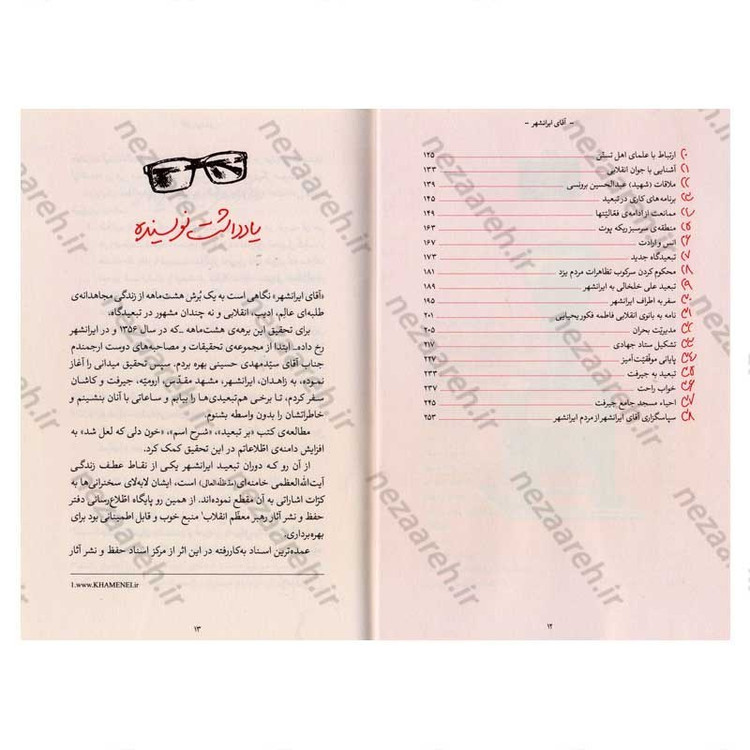 - آقای ایرانشهر -
۱۰ ارتباط با علمای اهل تسنّن ۱۲۵
۱۱ آشنایی با جوان انقلابی ۱۳۳
۱۲ ملاقات (شهید) عبدالحسین برونسی ۱۳۹
۱۳ برنامه‌های کاری در تبعید ۱۴۵
۱۴ ممانعت از ادامه‌ی فعّالیتها ۱۴۹
۱۵ منطقه‌ی سرسبز ریکه پوت ۱۶۳
۱۶ انس و ارادت ۱۶۷
۱۷ تبعیدگاه جدید ۱۷۳
۱۸ محکوم کردن سرکوب تظاهرات مردم یزد ۱۸۱
۱۹ تبعید علی خلخالی به ایرانشهر ۱۸۹
۲۰ سفر به اطراف ایرانشهر ۱۹۵
۲۱ نامه به بانوی انقلابی فاطمه فکوریحیایی ۲۰۱
۲۲ مدیریّت بحران ۲۰۵
۲۳ تشکیل ستاد جهادی ۲۱۷
۲۴ پایانی موفّقیّت‌آمیز ۲۲۷
۲۵ تبعید به جیرفت ۲۳۳
۲۶ خواب راحت ۲۳۷
۲۷ احیاء مسجد جامع جیرفت ۲۴۵
۲۸ سپاسگزاری آقای ایرانشهر از مردم ایرانشهر ۲۵۳
۱۲
یادداشت نویسنده
«آقای ایرانشهر» نگاهی است به یک بُرش هشت‌ماهه از زندگی مجاهدانه‌ی
طلبه‌ای عالِم، ادیب، انقلابی و نه چندان مشهور در تبعیدگاه.
برای تحقیق این برهه‌ی هشت‌ماهه ـ‌که در سال ۱۳۵۶ و در ایرانشهر
رخ داده‌ـ ابتدا از مجموعه‌ی تحقیقات و مصاحبه‌های دوست ارجمندم
جناب آقای سیّدمهدی حسینی بهره بردم. سپس تحقیق میدانی را آغاز
نموده، به زاهدان، ایرانشهر، مشهد مقدّس، ارومیّه، جیرفت و کاشان
سفر کردم، تا برخی هم‌تبعیدی‌ها را بیابم و ساعاتی با آنان بنشینم و
خاطراتشان را بدون واسطه بشنوم.
مطالعه‌ی کتب «بر تبعید»، «شرح اسم»، «خون دلی که لعل شد» به
افزایش دامنه‌ی اطّلاعاتم در این تحقیق کمک کرد.
از آن رو که دوران تبعید ایرانشهر یکی از نقاط عطف زندگی
آیت‌الله‌العظمی خامنه‌ای (مدّظلّه‌العالی) است، ایشان لابه‌لای سخنرانی‌ها به
کرّات اشاراتی به آن مقطع نموده‌اند. از همین رو پایگاه اطّلاع‌رسانی دفتر
حفظ و نشر آثار رهبر معظّم انقلاب۱ منبع خوب و قابل اطمینانی بود برای
بهره‌برداری.
عمده‌ترین اسناد به‌کاررفته در این اثر از مرکز اسناد حفظ و نشر آثار
1.www.KHAMENEI.ir
۱۳
nezaareh.ir
nezaareh.ir
nezaareh.ir
nezaareh.ir
nezaareh.ir
nezaareh.ir
nezaareh.ir
nezaareh.ir